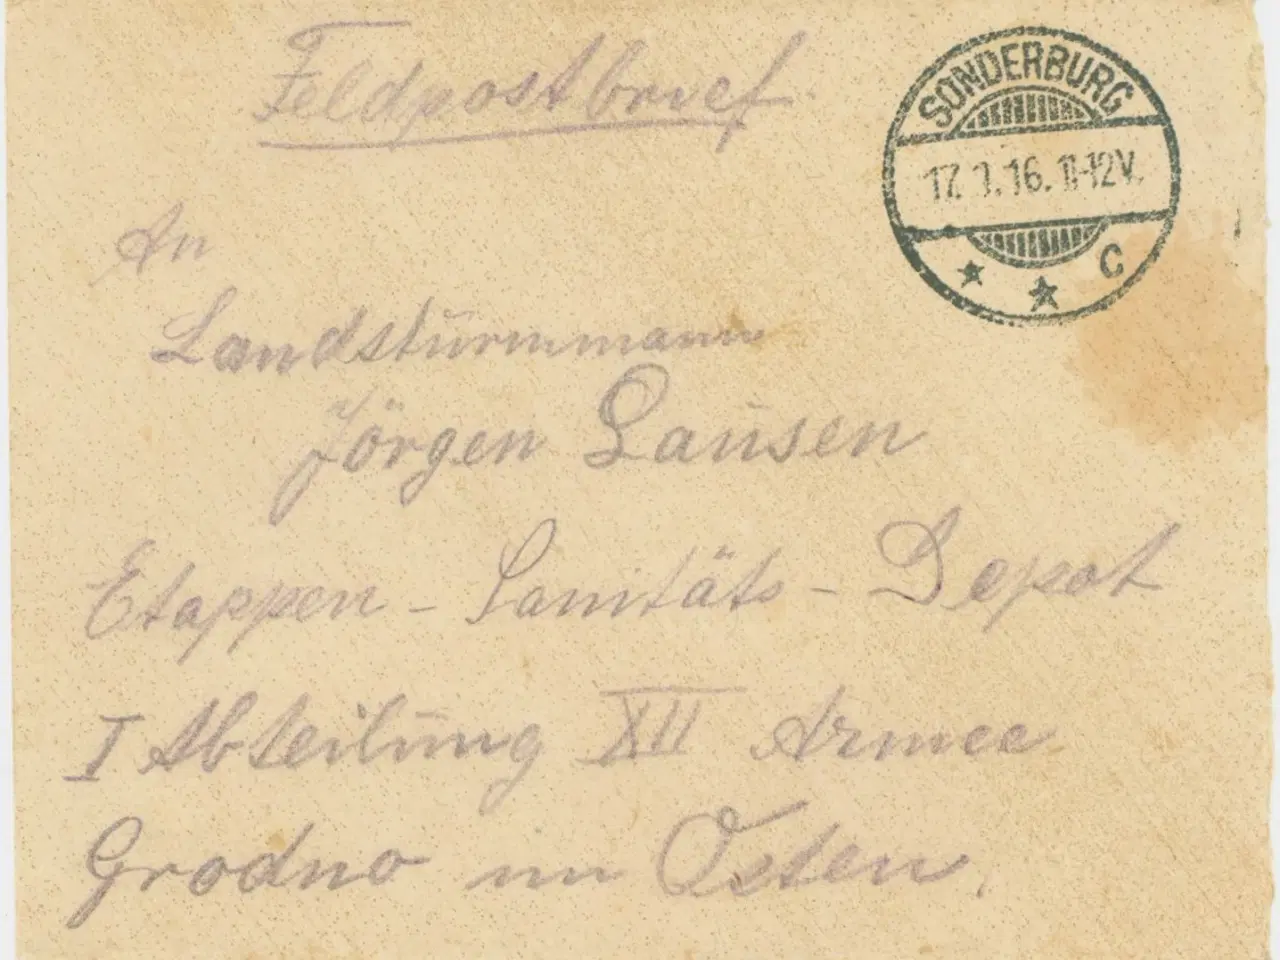 Feldpostbrief
SONDERBURG
17.1.16.11-12V.
* * C
An
Landsturmmann
Jörgen Lausen
Etappen - Sanitäts - Depot
I Abteilung XII Armee
Grodno im Osten.